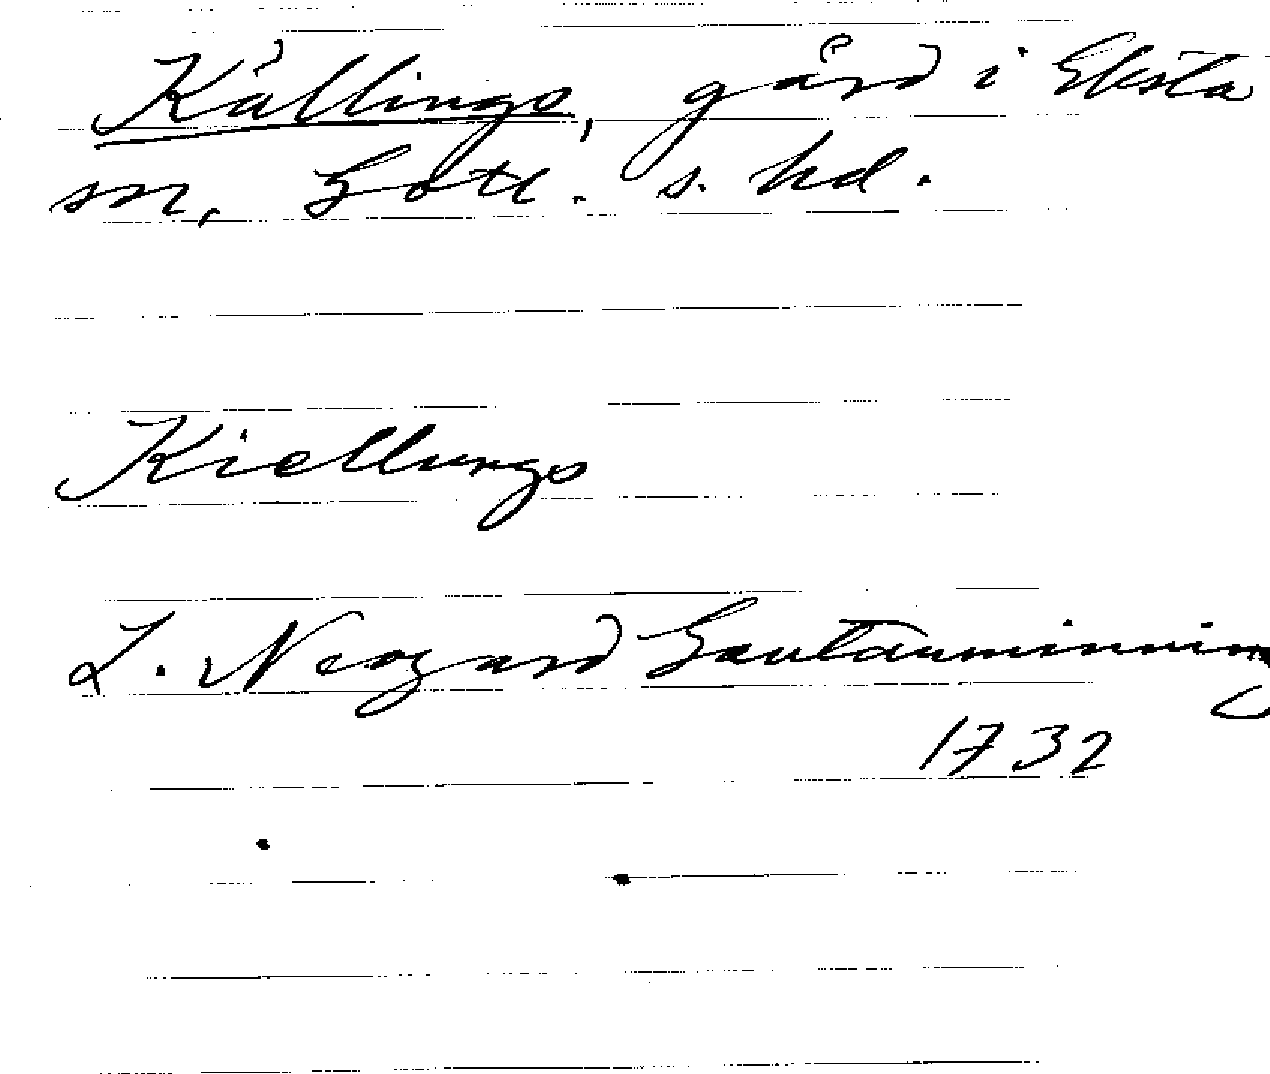 Källings, gård i Eksta
sn, Gotl. s. hd.
Kiellungs
L. Neogard Gautauminning
1732